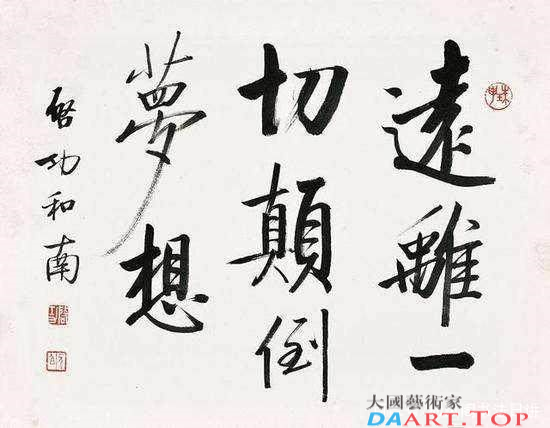 遠離一
切顛倒
夢想
啓功和南
大國藝術家
DAART.TOP